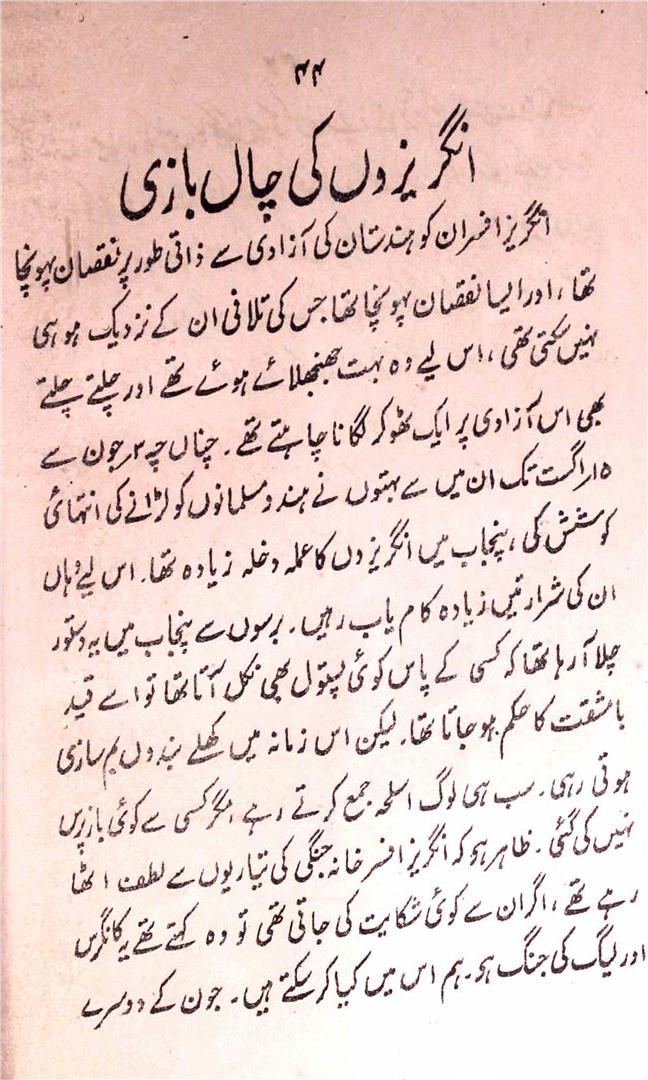 ۴۴
انگریزوں کی چال بازی
انگریز افسران کو ہندستان کی آزادی سے ذاتی طور پر نقصان پہونچا
تھا، اور ایسا نقصان پہونچا تھا جس کی تلافی ان کے نزدیک ہو ہی
نہیں سکتی تھی، اس لیے وہ بہت جھنجھلائے ہوئے تھے اور چلتے چلتے
بھی اس آزادی پر ایک ٹھوکر لگانا چاہتے تھے۔ چناں چہ ۳؍ جون سے
۱۵؍ اگست تک ان میں سے بہتوں نے ہندو مسلمانوں کو لڑانے کی انتہائی
کوشش کی، پنجاب میں انگریزوں کا عملہ دخلہ زیادہ تھا۔ اس لیے وہاں
ان کی شرارتیں زیادہ کام یاب رہیں۔ برسوں سے پنجاب میں یہ دستور
چلا آرہا تھا کہ کسی کے پاس کوئی پستول بھی نکل آتا تھا تو اسے قیدِ
بامشقت کا حکم ہو جاتا تھا۔ لیکن اس زمانہ میں کھلے بندوں بم سازی
ہوتی رہی۔ سب ہی لوگ اسلحہ جمع کرتے رہے مگر کسی سے کوئی بازپرس
نہیں کی گئی۔ ظاہر ہو کہ انگریز افسر خانہ جنگی کی تیاریوں سے لطف اٹھا
رہے تھے، اگر ان سے کوئی شکایت کی جاتی تھی تو وہ کہتے تھے یہ کانگرس
اور لیگ کی جنگ ہو۔ ہم اس میں کیا کر سکتے ہیں۔ جون کے دوسرے